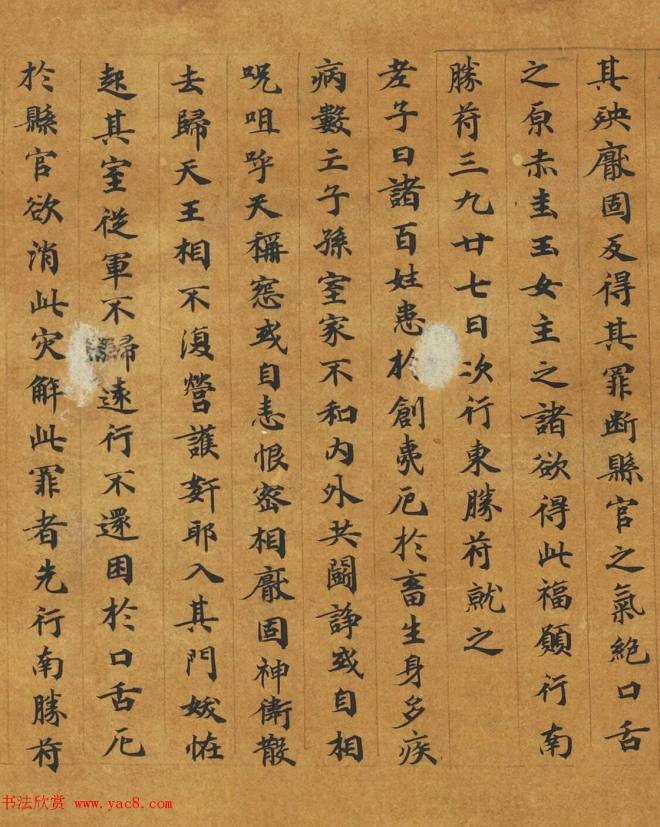 其殃厭固反得其罪断縣官之氣絶口舌
之原赤圭玉女主之諸欲得此福願行南
勝符三九廿七日次行東勝符就之
老子曰諸百姓患於創夷厄於畜生身多疾
病數亡子孫室家不和内外共鬪諍或自相
呪咀呼天稱怨或自恚恨密相厭固神衛散
去歸天王相不復營護奸耶入其門妖恠
起其室從軍不歸遠行不還困於口舌厄
於縣官欲消此灾解此罪者先行南勝符
书法欣赏 www.yac8.com